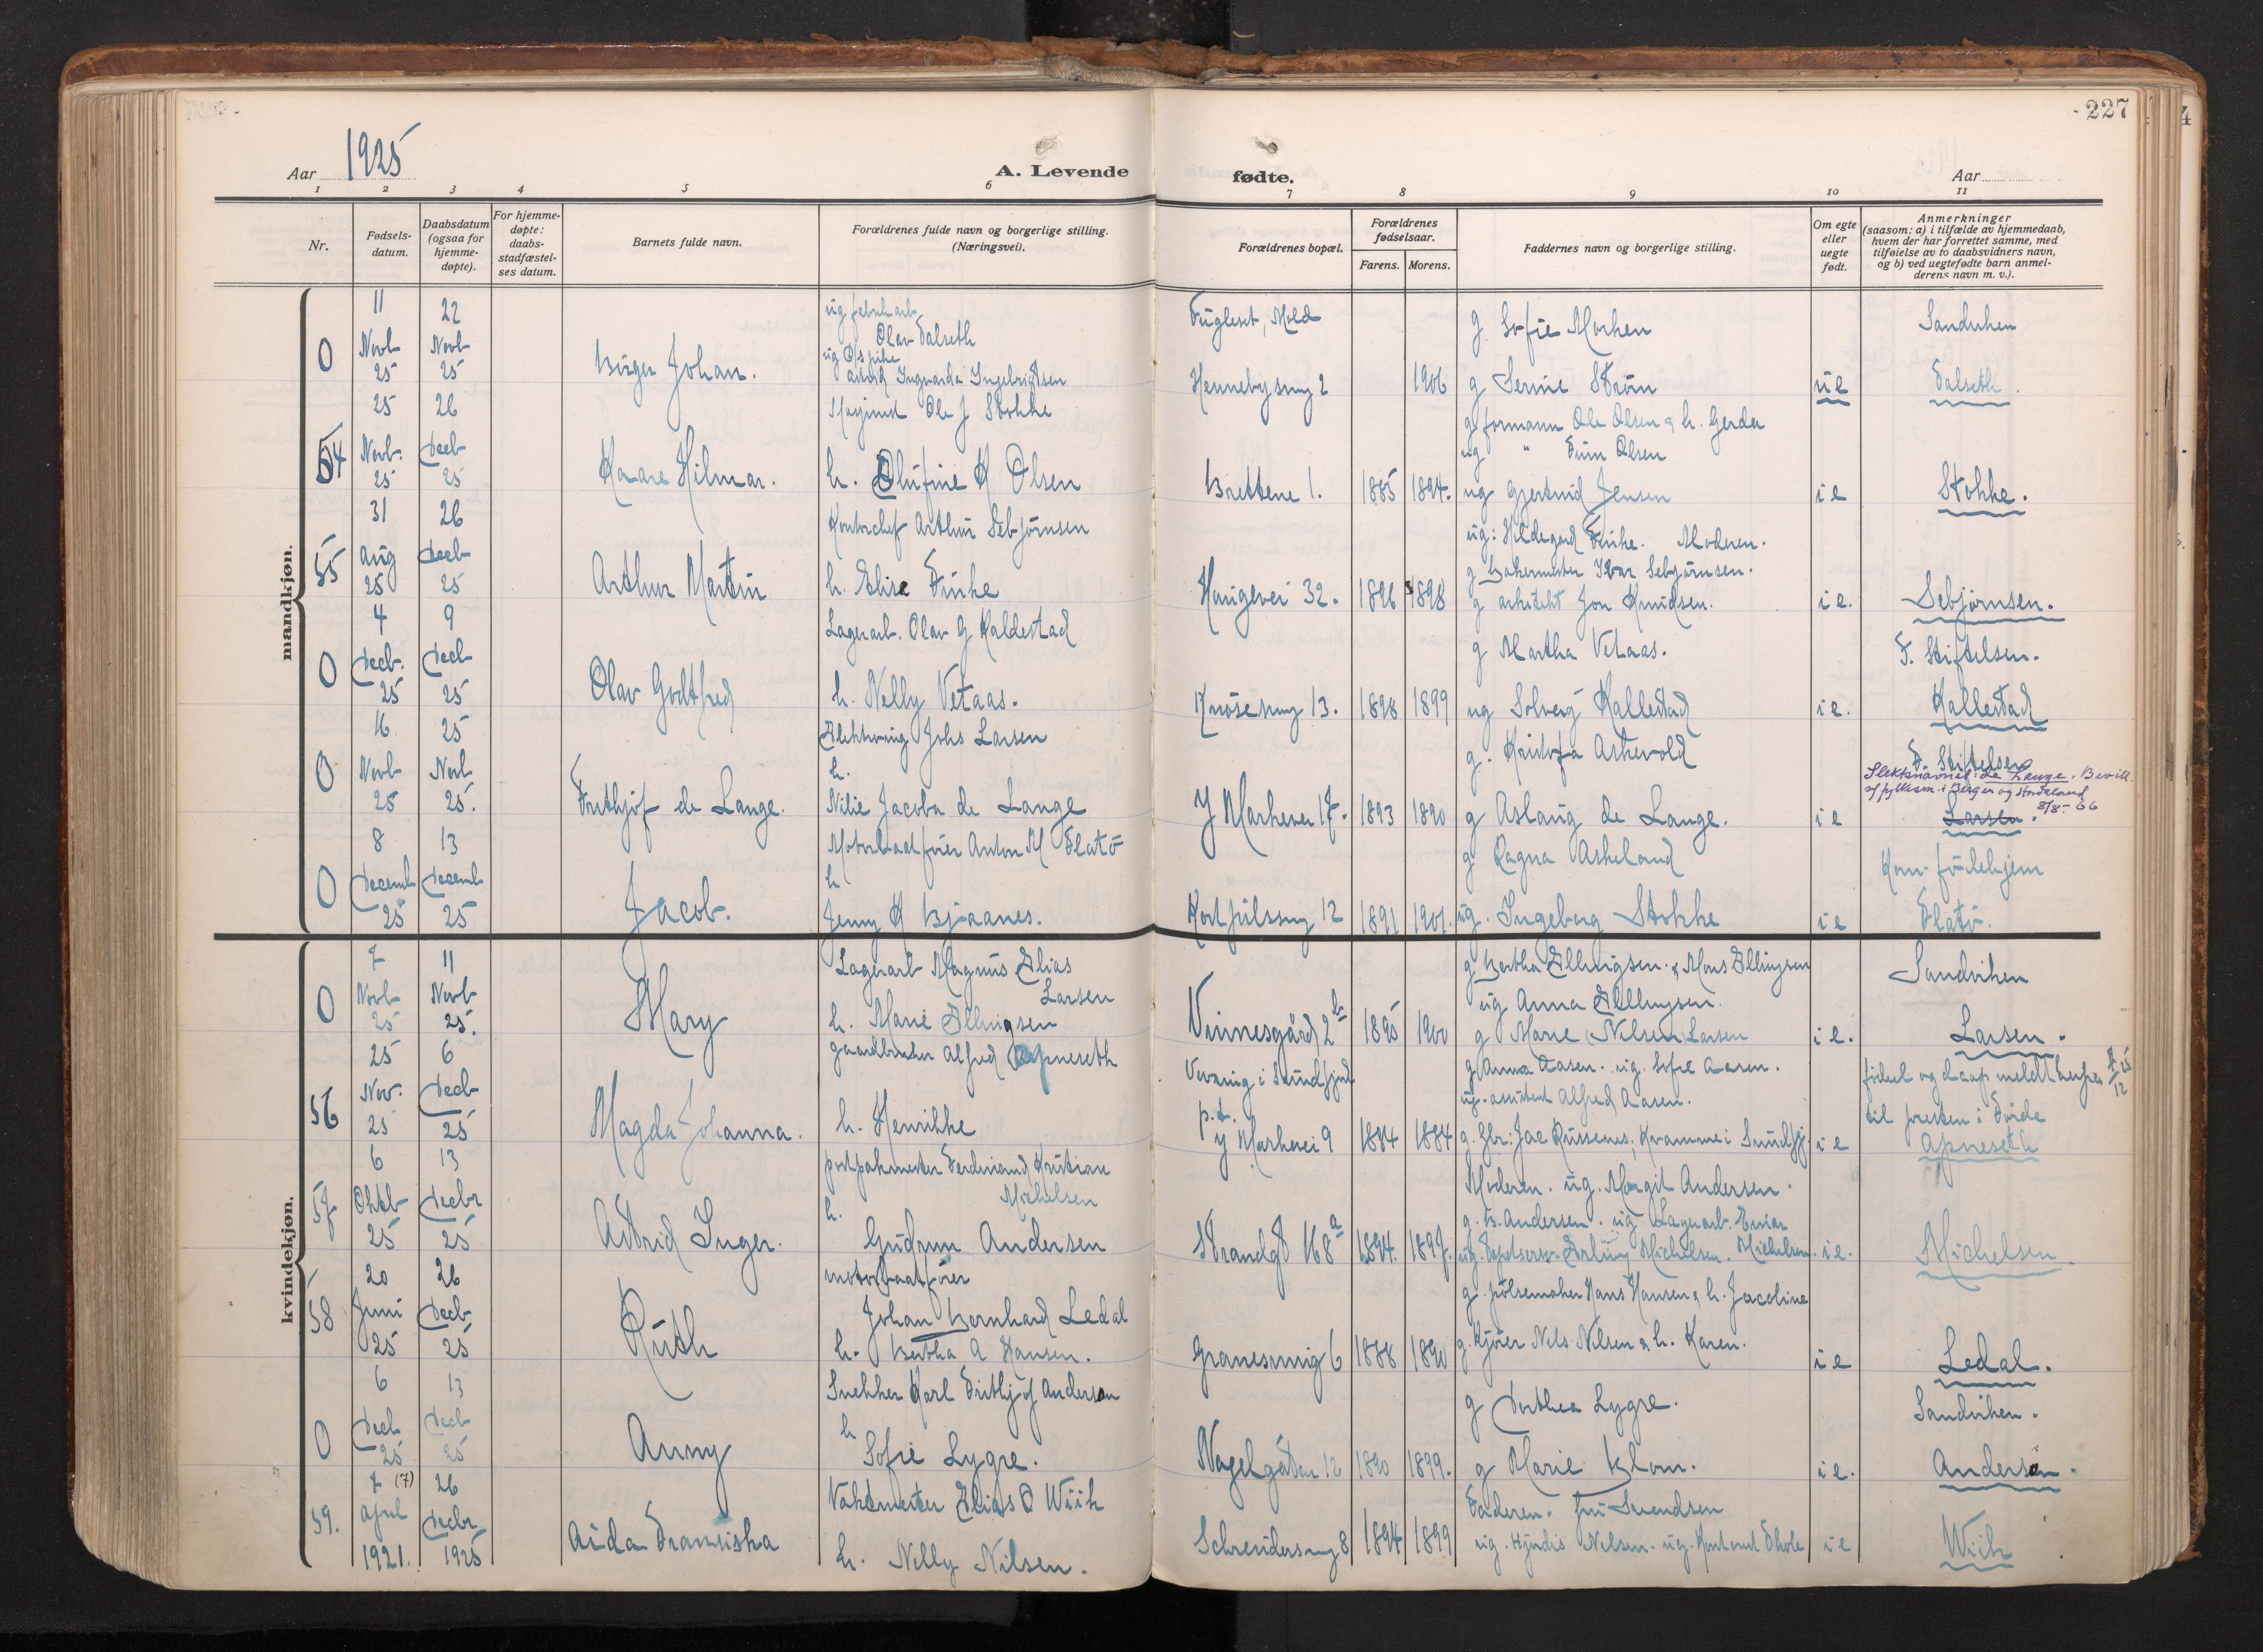 227
Aar 1925
A. Levende
fødte.
Aar
1 2 3 4 5 6 7 8 9 10 11
Nr.
Fødsels-
datum.
Daabsdatum
(ogsaa for
hjemme-
døpte).
For hjemme-
døpte:
daabs-
stadfæstel-
ses datum.
Barnets fulde navn.
Forældrenes fulde navn og borgerlige stilling.
(Næringsvei).
Forældrenes bopæl.
Forældrenes
fødselsaar.
Farens. Morens.
Faddernes navn og borgerlige stilling.
Om egte
eller
uegte
født.
Anmerkninger
(saasom: a) i tilfælde av hjemmedaab,
hvem der har forrettet samme, med
tilføielse av to daabsvidners navn,
og b) ved uegtefødte barn anmel-
derens navn m. v.).
mandkjøn.
0
11
Novb
25
22
Novb
25
Birger Johan.
ug fabrikarb
Olav Dalseth
ug
Astrid Ingvarda Ingebrigtsen
Fugleset, Mold
Hennebysmg 2
1906
g. Sofie Morken
g Sernie Strøm
u e
Sandviken
Dalseth.
54
25
Novb.
25
26
Decb
25
Kaare Hilmar.
Maskinist Ole J Stokke
h. Olufine K Olsen
Brettene 1.
1885
1894.
g formann Ole Olsen & h. Gerda
ug " Finn Olsen
ug Gjertrud Jensen
i e
Stokke.
55
31
Aug
25
26
Decb
25
Arthur Martin
Kontorchef Arthur Sebjørnsen
h. Elise Finke
Haugevei 32.
1896
1898
ug: Hildegard Finke. Moderen.
g Bakermester Ivar Sebjørnsen.
g arkitekt Jon Knudsen.
i e.
Sebjørnsen.
0
4
Decb.
25
9
Decb
25
Olav Godtfred
Lagerarb. Olav G Kaldestad
h. Nelly Vetaas.
Knøsesmug 13.
1898
1899
g Martha Vetaas.
ug Solveig Kallestad
i e.
F. Stiftelsen.
Kallestad
0
16
Novb
25
25
Novb
25.
Frithjof de Lange.
Elektroing Johs Larsen
h.
Nilie Jacoba de Lange
Y Markevei 17.
1893
1890
g. Kristofa Askevold
g Aslaug de Lange.
i e
F. Stiftelsen
Slektsnavnet: de Lange. Bevill.
af fylkesm. i Bergen og Hordaland
8/8-66
Larsen.
0
8
Decemb
25
13
Decemb
25
Jacob.
Motorbaatfører Anton M Flatø
h
Jenny K Bjaanes.
Kort julssmg 12
1891
1901.
g Ragna Askeland
ug. Ingeborg Stokke
i e
Kom. fødehjem
Flatø.
kvindekjøn.
0
7
Novb
25
11
Novb
25.
Mary
Lagerarb Magnus Elias
Larsen
h. Marie Ellingsen
Vinnesgård 2b
1895
1900
g Bertha Ellingsen. & Mons Ellingsen
ug Anna Ellingsen.
g Marie (Nilsen) Larsen
i e.
Sandviken
Larsen.
56
25
Nov.
25
6
Decb
25
Magda Johanna.
gaardbruker Alfred Apneseth
h. Henrikke
Vevring i Sundfjord
p.t.
Y Markevei 9
1884
1884
g Anna Aasen. ug. Sofie Aasen.
ug. assistent Alfred Aasen.
g. Gbr: Jac Russenes, Kvammei Sundfj.
i e
fødsel og daap meldt herfra 7/12 25
til presten i Førde
Apneseth
57
6
Oktb
25
13
Decbr
25
Astrid Inger.
postpakmester Ferdinand Kristian
Michelsen
h.
Gudrun Andersen
Strandgt 168a
1894.
1897.
Moderen. ug. Margit Andersen.
g. B. Andersen. ug Lagerarb. Einar
Michelsen.
ug. Erling Michelsen.
i e.
Michelsen.
58
20
Juni
25
26
Decb
25
Ruth
motorbaatfører
Johan Bernhard Ledal
h. Bertha A Hansen.
Granesmug 6
1888
1890
g. pølsemaker Hans Hansen & h. Jacoline
g. Kjører Nels Nilsen & h. Karen.
i e
Ledal.
0
6
Decb
25
13
Decb
25
Anny
Snekker Karl Frithjof Andersen
h
Sofie Lygre.
Nagelgåten 12
1890
1899.
g Dorthea Lygre.
g Marie Blom.
i e.
Sandviken.
Andersen.
59.
7 (7)
April
1921.
26
Decbr
1925
Aida Fransiska
Vaktmester Elias O Wiik
h. Nelly Nilsen.
Schreudersmg 8
1894
1899
Faderen. fru Svendsen
ug. Hjørdis Nilsen. ug.
i e
Wiik